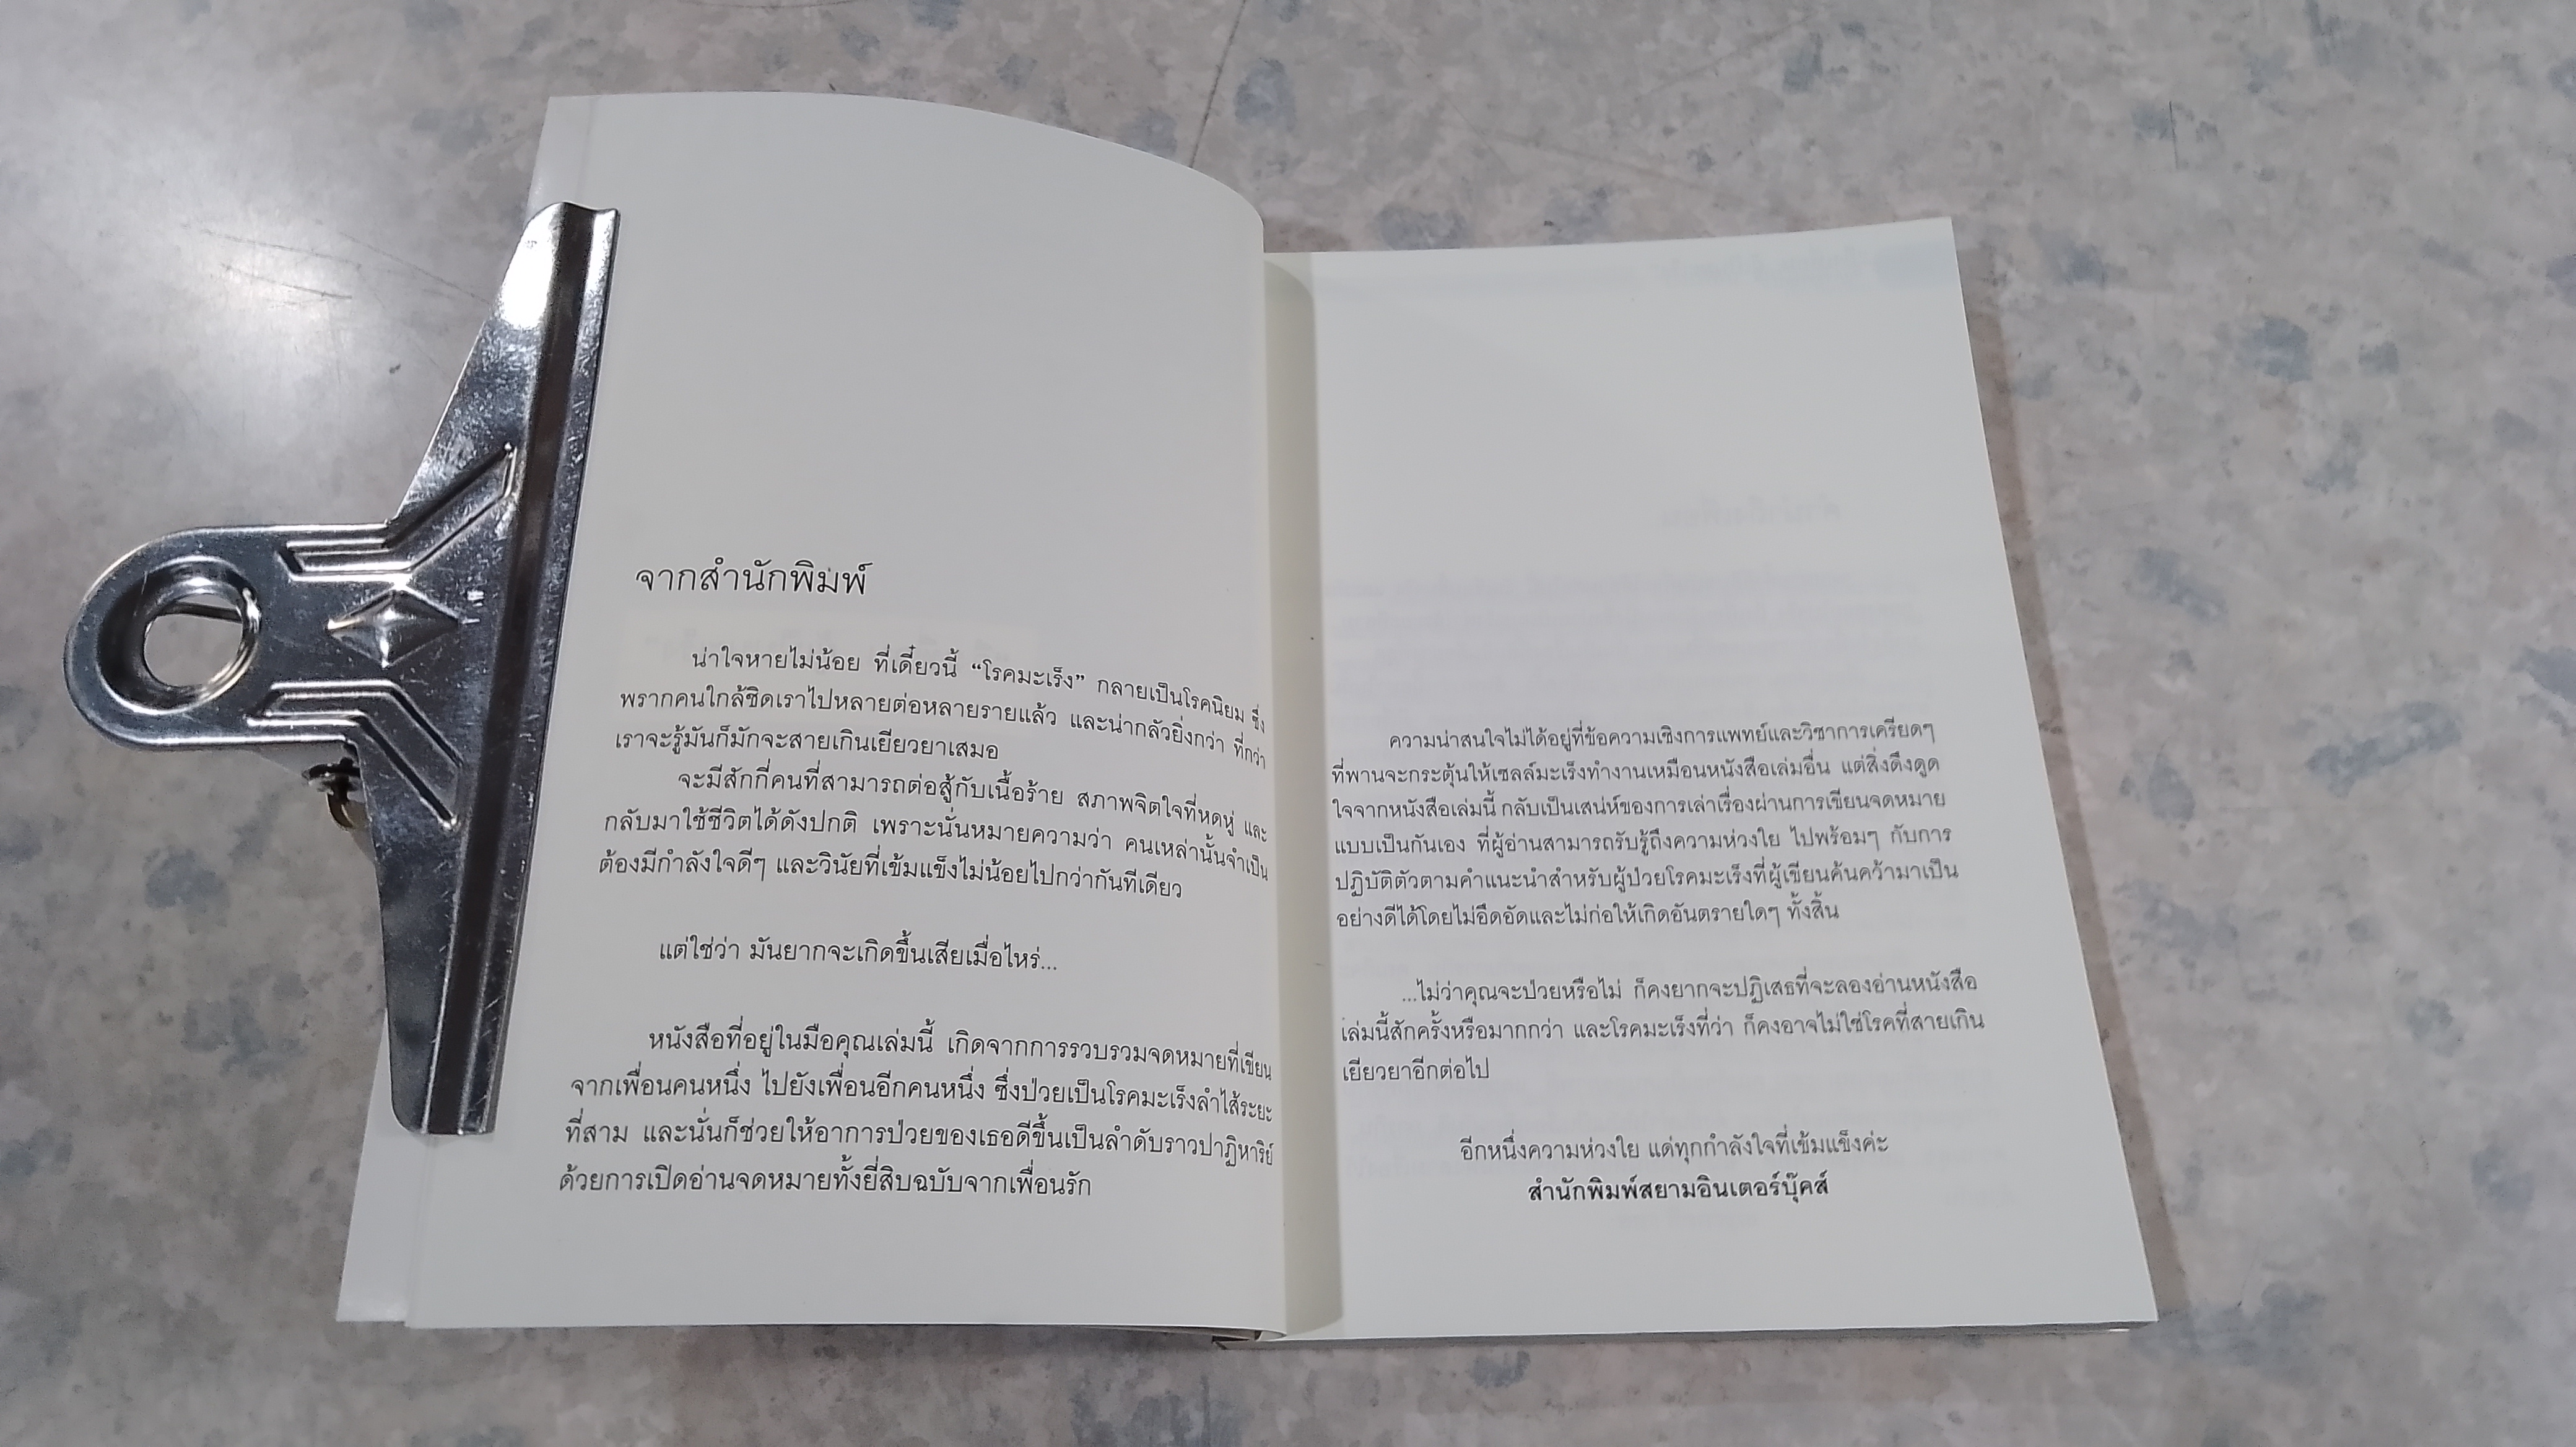 จากสำนักพิมพ์
น่าใจหายไม่น้อย ที่เดี๋ยวนี้ “โรคมะเร็ง” กลายเป็นโรคนิยม ซึ่ง
พรากคนใกล้ชิดเราไปหลายต่อหลายรายแล้ว และน่ากลัวยิ่งกว่า ที่กว่า
เราจะรู้มันก็มักจะสายเกินเยียวยาเสมอ
จะมีสักกี่คนที่สามารถต่อสู้กับเนื้อร้าย สภาพจิตใจที่หดหู่ และ
กลับมาใช้ชีวิตได้ดังปกติ เพราะนั่นหมายความว่า คนเหล่านั้นจำเป็น
ต้องมีกำลังใจดีๆ และวินัยที่เข้มแข็งไม่น้อยไปกว่ากันทีเดียว
แต่ใช่ว่า มันยากจะเกิดขึ้นเสียเมื่อไหร่...
หนังสือที่อยู่ในมือคุณเล่มนี้ เกิดจากการรวบรวมจดหมายที่เขียน
จากเพื่อนคนหนึ่ง ไปยังเพื่อนอีกคนหนึ่ง ซึ่งป่วยเป็นโรคมะเร็งลำไส้ระยะ
ที่สาม และนั่นก็ช่วยให้อาการป่วยของเธอดีขึ้นเป็นลำดับราวปาฏิหาริย์
ด้วยการเปิดอ่านจดหมายทั้งยี่สิบฉบับจากเพื่อนรัก
ความน่าสนใจไม่ได้อยู่ที่ข้อความเชิงการแพทย์และวิชาการเครียดๆ
ที่พานจะกระตุ้นให้เซลล์มะเร็งทำงานเหมือนหนังสือเล่มอื่น แต่สิ่งดึงดูด
ใจจากหนังสือเล่มนี้ กลับเป็นเสน่ห์ของการเล่าเรื่องผ่านการเขียนจดหมาย
แบบเป็นกันเอง ที่ผู้อ่านสามารถรับรู้ถึงความห่วงใย ไปพร้อมๆ กับการ
ปฏิบัติตัวตามคำแนะนำสำหรับผู้ป่วยโรคมะเร็งที่ผู้เขียนค้นคว้ามาเป็น
อย่างดีได้โดยไม่อึดอัดและไม่ก่อให้เกิดอันตรายใดๆ ทั้งสิ้น
...ไม่ว่าคุณจะป่วยหรือไม่ ก็คงยากจะปฏิเสธที่จะลองอ่านหนังสือ
เล่มนี้สักครั้งหรือมากกว่า และโรคมะเร็งที่ว่า ก็คงอาจไม่ใช่โรคที่สายเกิน
เยียวยาอีกต่อไป
อีกหนึ่งความห่วงใย แด่ทุกกำลังใจที่เข้มแข็งค่ะ
สำนักพิมพ์สยามอินเตอร์บุ๊คส์